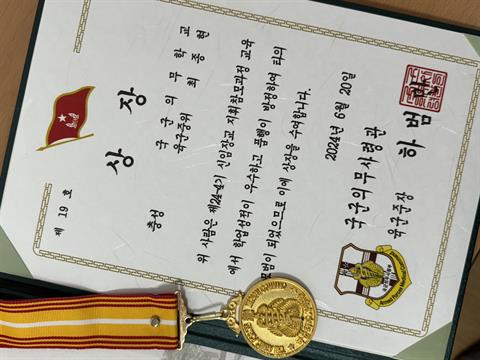 제 19 호
상 장
충성
국군의무학교
육군중위 최종현
위 사람은 제24-4기 신임장교 지휘참모과정 교육
에서 학업성적이 우수하고 품행이 방정하여 타의
모범이 되었으므로 이에 상장을 수여합니다.
2024년 6월 20일
국군의무사령관
육군준장 하범